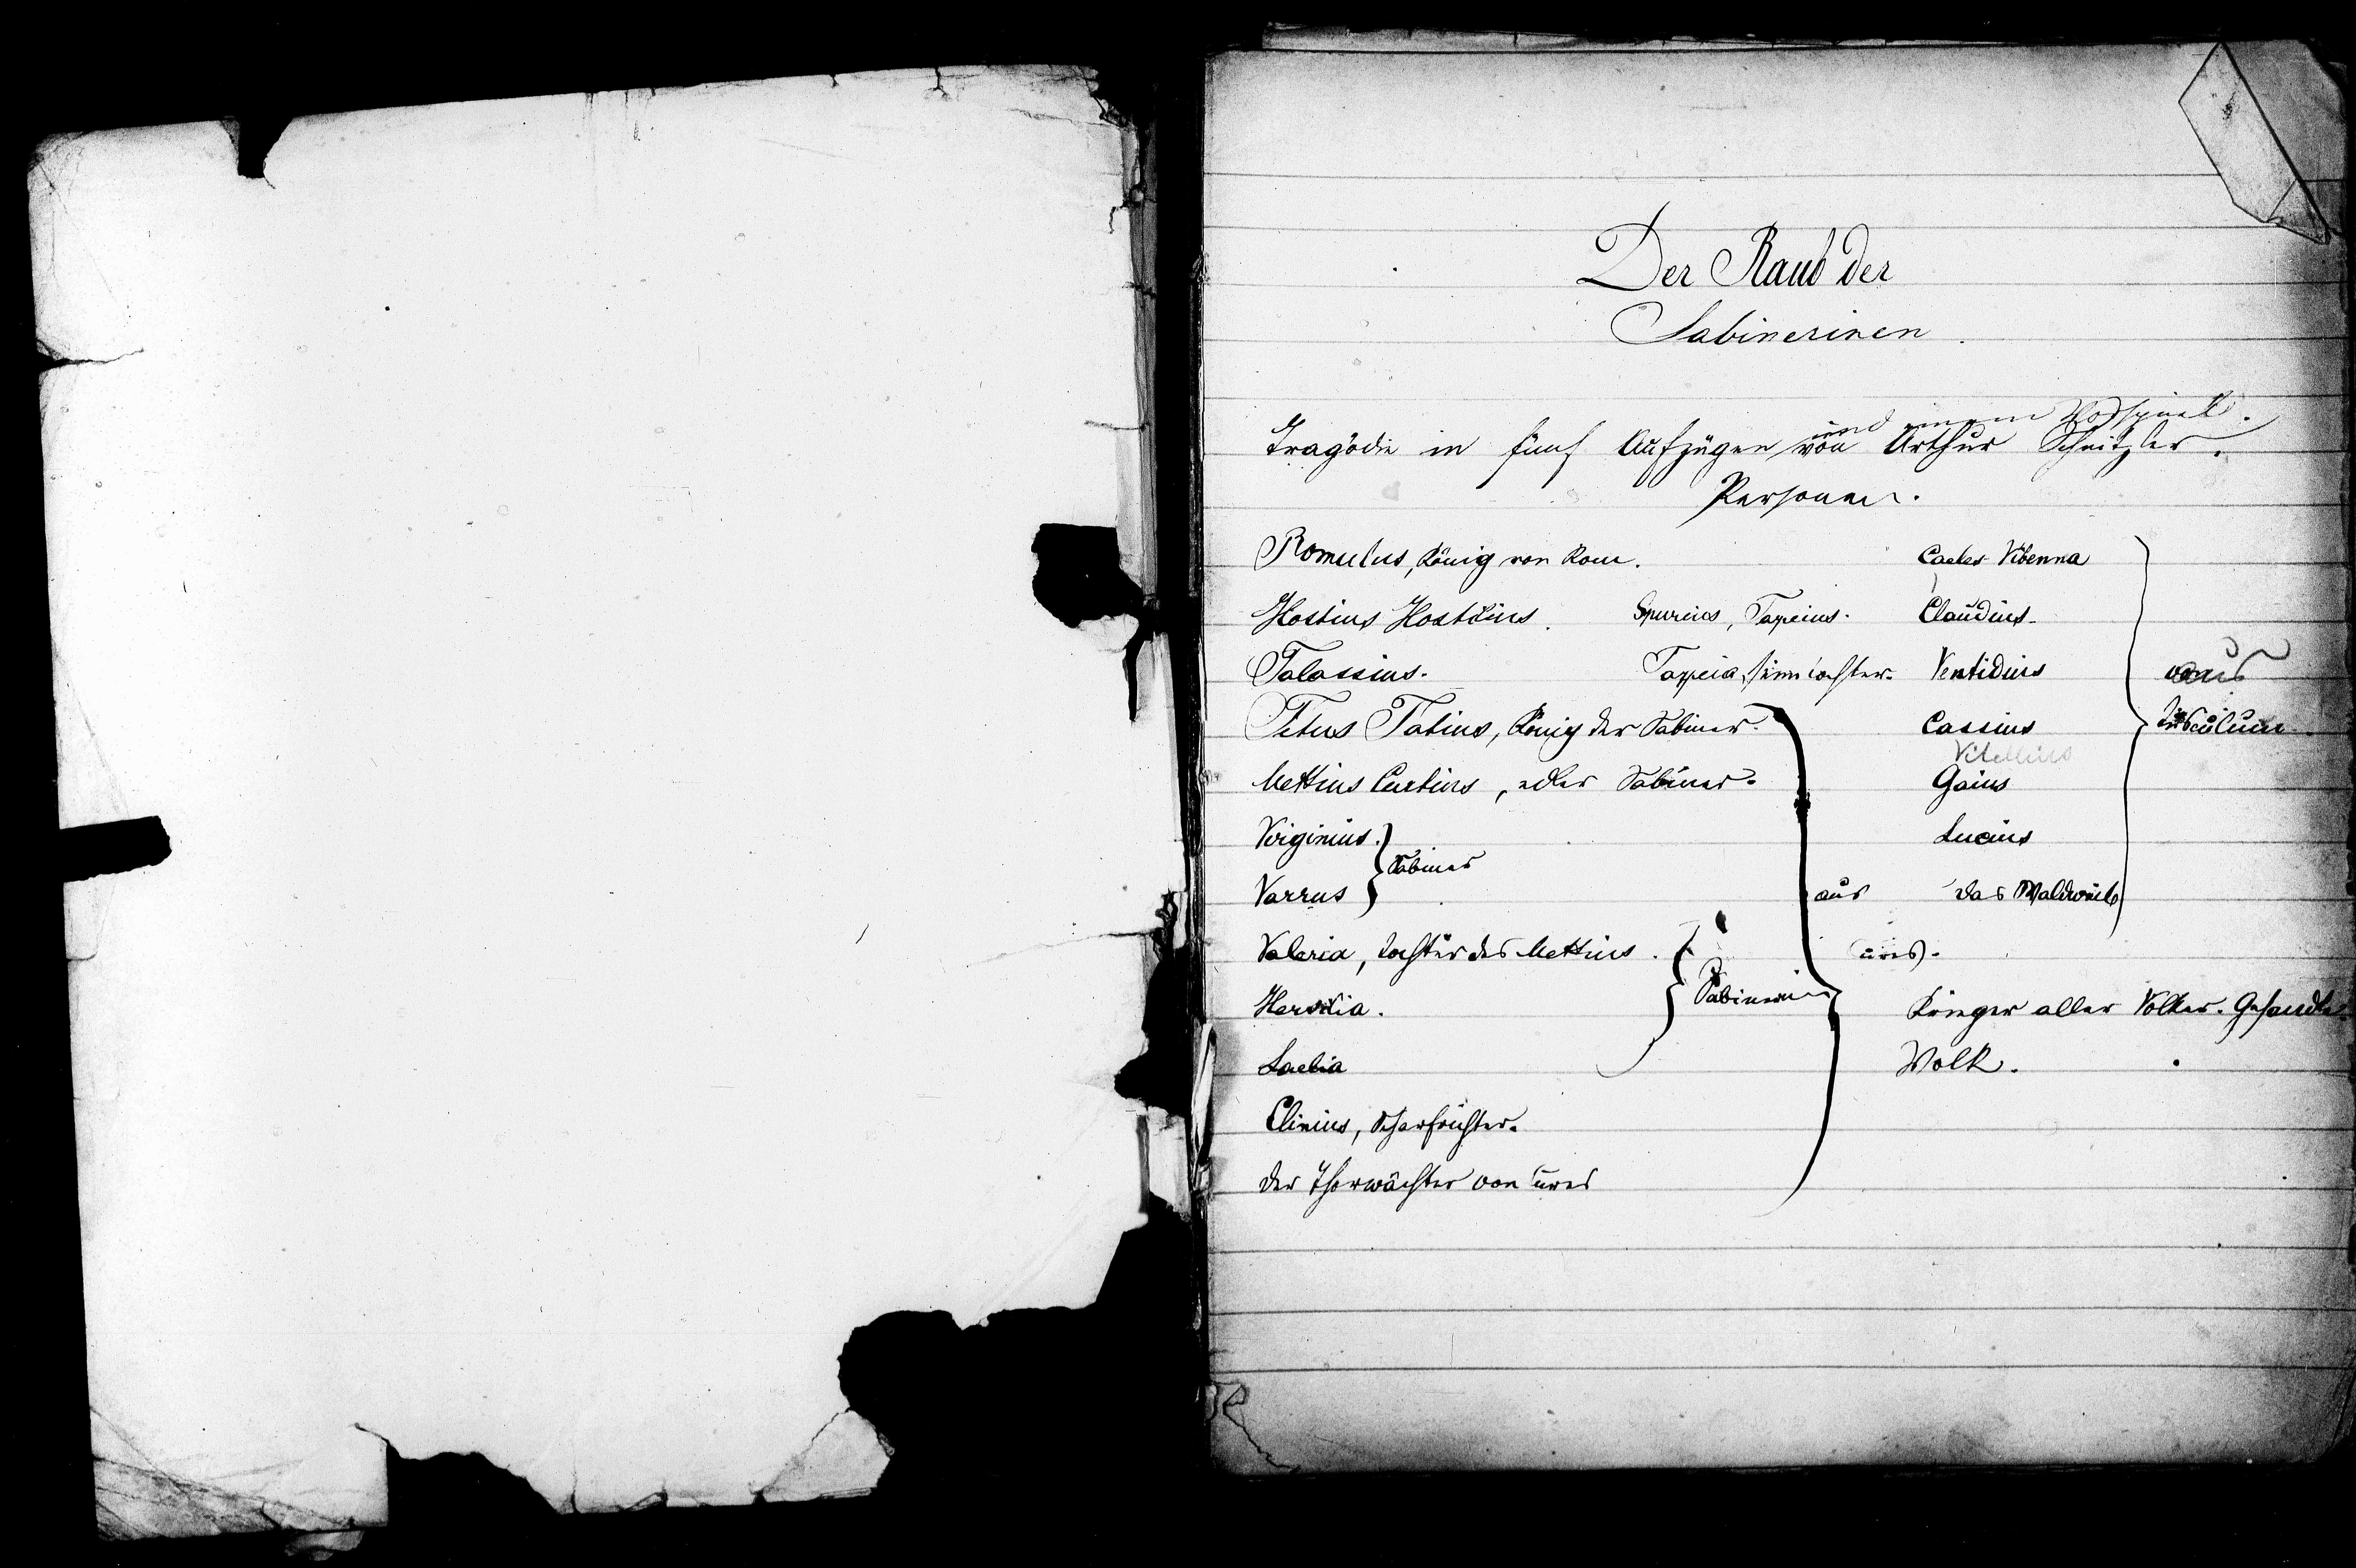 Der Raub der
Sabinerinen.
und einem Vorspiel.
Tragödie in fünf Aufzügen von Arthur Schnitzler.
Personen.
Romulus, König von Rom.
Hostius Hostilius.
Talassius.
Titus Tatius, König der Sabiner.
Mettius Curtius, edler Sabiner.
Virginius.
Sabiner
Varrus
Valeria, Tochter des Mettius.
Hersilia.
Sabinerin
Laelia
Clinius, Scharfrichter.
der Thorwächter von Cures
Spurius, Tapeius.
Tapeia, seine Tochter.
aus
Cures.
Caeles Vibenna
Claudius.
Ventidius
Cassius
Vitellius
Gaius
Lucius
Das Waldweib
aus
Tusculum.
Krieger aller Völker. Gesandte.
Volk.